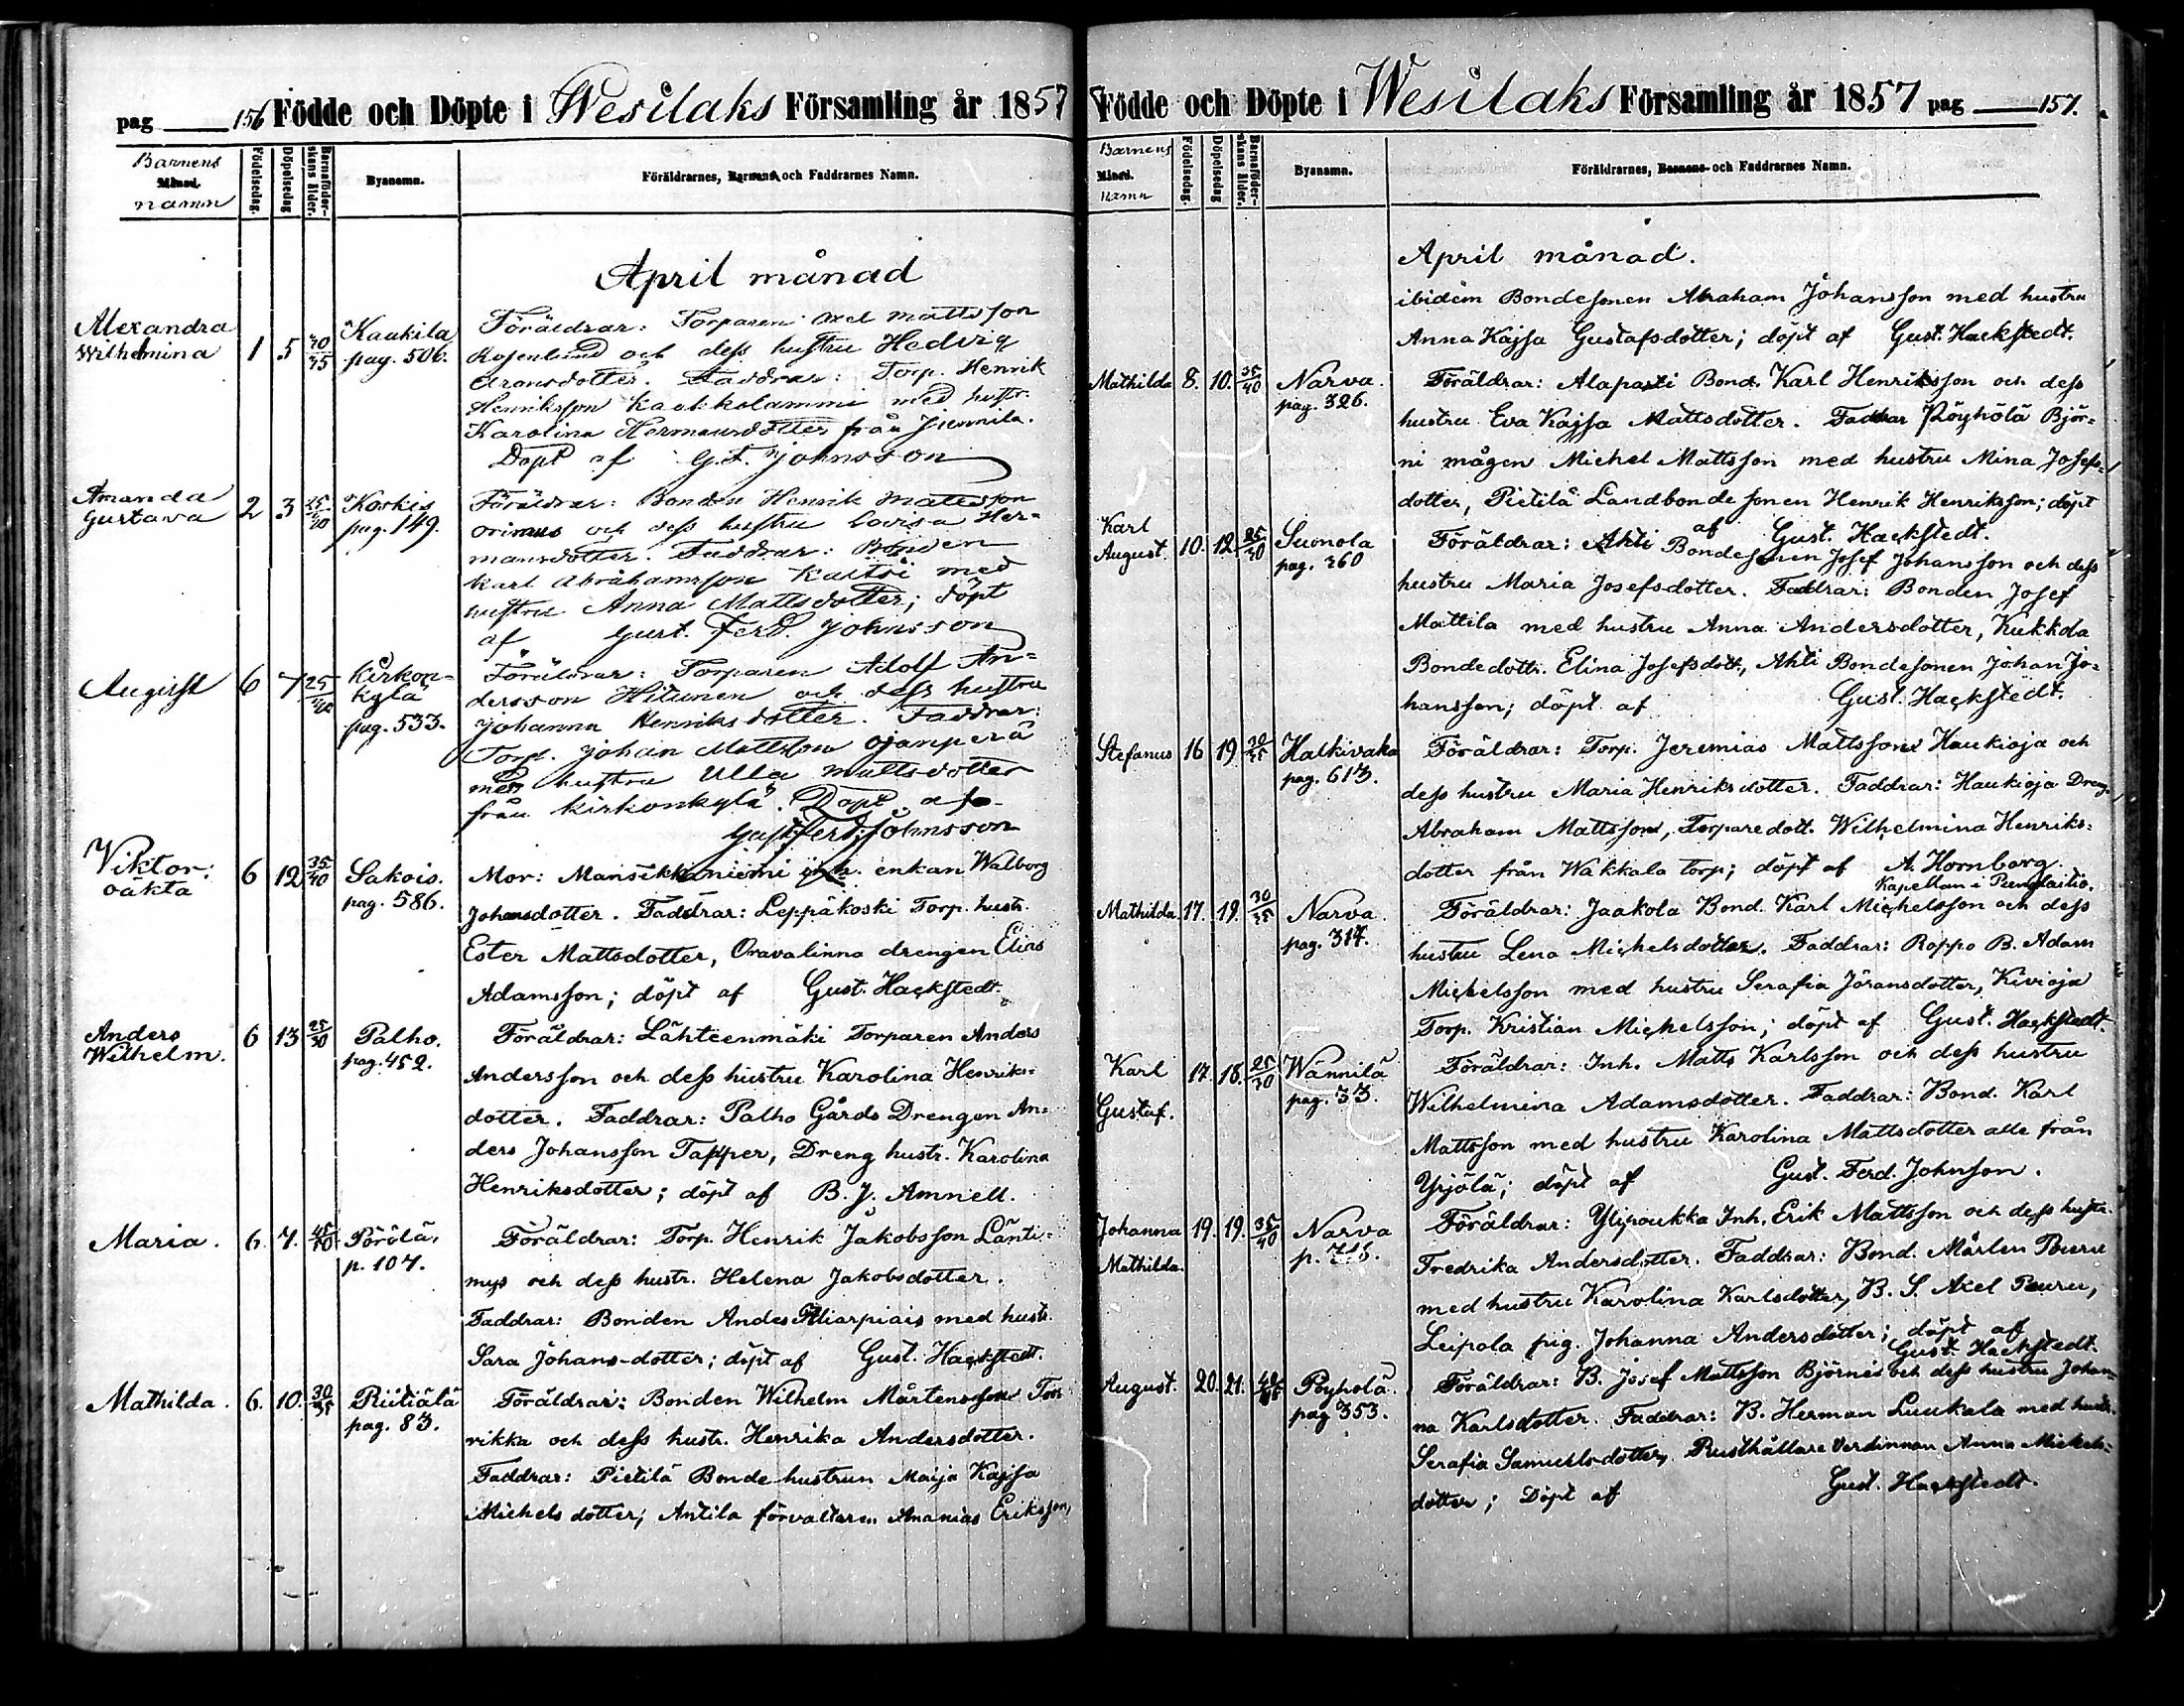 pag 156 Födde och Döpte i Wesilaks Församling år 1857
Barnens Månad. namn
Födelsedag.
Döpelsedag
Barnaföder-skans ålder.
Byanamn.
Föräldrarnes, Barnens och Faddrarnes Namn.
April månad
Alexandra Wilhelmina 1 5 30/35 Kaakila pag. 506.
Föräldrar: Torparen Axel Mattsson
Rosenlund och dess hustru Hedvig
Aronsdotter. Faddrar: Torp. Henrik
Henriksson Kaakkolammi med hustr.
Karolina Hermansdotter från
Döpt af G. F. Johnsson
Amanda Gustava 2 3 25/30 Koskis pag. 149.
Föräldrar: Bonden Henrik Mattsson
Orimus och dess hustru Lovisa Her-
mansdotter. Faddrar: Bonden
Karl Abrahamsson Kaltsi med
hustru Anna Mattsdotter; döpt
af Gust. Ferd. Johnsson
August 6 7 25/30 Kirkon-kylä pag. 533.
Föräldrar: Torparen Adolf An-
dersson Hitunen och dess hustru
Johanna Henriksdotter. Faddrar:
Torp. Johan Mattsson Ojanperä
med hustru Ulla Mattsdotter
från Kirkonkylä. Döpt af
Gust. Ferd. Johnsson
Viktor. oäkta 6 12 35/40 Sakois. pag. 586.
Mor: Mansikkaniemi inh. enkan Walborg
Johansdotter. Faddrar: Leppäkoski Torp. hustr.
Ester Mattsdotter, Oravalinna drengen Elias
Adamsson; döpt af Gust. Hackstedt.
Anders Wilhelm. 6 13 25/30 Palho. pag. 452.
Föräldrar: Lähteenmäki Torparen Anders
Andersson och dess hustru Karolina Henriks-
dotter. Faddrar: Palho Gårds Drengen An-
ders Johansson Tapper, Dreng hustr. Karolina
Henriksdotter; döpt af B. J. Amnell.
Maria. 6. 7. 45/50 Pörölä, p. 107.
Föräldrar: Torp. Henrik Jakobsson Länti-
mys och dess hustr. Helena Jakobsdotter.
Faddrar: Bonden Andes med hustr.
Sara Johans-dotter; döpt af Gust. Hackstedt.
Mathilda. 6. 10. 30/35 Riitiälä pag. 83.
Föräldrar: Bonden Wilhelm Mårtensson Tor-
rikka och dess hustr. Henrika Andersdotter.
Faddrar: Pietilä Bonde hustrun Maija Kajsa
Michels dotter; Antila förvaltaren Ananias Eriksson,
Födde och Döpte i Wesilaks Församling år 1857 pag 157.
Barnens Månad. namn
Födelsedag.
Döpelsedag
Barnaföder-skans ålder.
Byanamn.
Föräldrarnes, Barnens och Faddrarnes Namn.
April månad.
ibidem Bondesonen Abraham Johansson med hustru
Anna Kajsa Gustafsdotter; döpt af Gust. Hackstedt.
Mathilda 8. 10. 35/40 Narva. pag. 326.
Föräldrar: Alapasti Bond. Karl Henriksson och dess
hustru Eva Kajsa Mattsdotter. Faddrar Pöyhölä Björ-
ni mågen Michel Mattsson med hustru Mina Josefs-
dotter, Pietilä Landbonde sonen Henrik Henriksson; döpt
af Gust. Hackstedt.
Karl August. 10. 12. 25/30 Suonola pag. 360
Föräldrar: Ahti Bondesonen Josef Johansson och dess
hustru Maria Josefsdotter. Faddrar: Bonden Josef
Mattila med hustru Anna Andersdotter, Kukkola
Bondedottr. Elina Josefsdott., Ahti Bondesonen Johan Jo-
hansson; döpt af Gust. Hackstedt.
Stefanus 16 19 30/35 Halkivaha pag. 613.
Föräldrar: Torp. Jeremias Mattsson Haukioja och
dess hustru Maria Henriksdotter. Faddrar: Haukioja Dreng.
Abraham Mattsson, Torparedott. Wilhelmina Henriks-
dotter från Wakkala torp; döpt af A. Hornborg.
Kapellan i Pungalaitio.
Mathilda 17. 19. 30/35 Narva. pag. 314.
Föräldrar: Jaakola Bond. Karl Michelsson och dess
hustru Lena Michelsdotter. Faddrar: Roppo B. Adam
Michelsson med hustru Serafia Jöransdotter, Kivioja
Torp. Kristian Michelsson; döpt af Gust. Hackstedt.
Karl Gustaf. 17. 18. 25/30 Wännilä pag. 33.
Föräldrar: Inh. Matts Karlsson och dess hustru
Wilhelmina Adamsdotter. Faddrar: Bond. Karl
Mattsson med hustru Karolina Mattsdotter alle från
Yrjölä; döpt af Gust. Ferd. Johnson.
Johanna Mathilda. 19. 19. 35/40 Narva
Föräldrar: Ylipoukka Inh. Erik Mattsson och dess hustr.
Fredrika Andersdotter. Faddrar: Bond. Mårten Peuru
med hustru Karolina Karlsdotter, B. S. Axel Peuru,
Leipola pig. Johanna Andersdotter; döpt af
Gust. Hackstedt.
August. 20. 21. Pöyhölä. pag 353.
Föräldrar: B. Josef Mattsson Björni och dess hustru Johan-
na Karlsdotter. Faddrar: B. Herman Luukala med hustr.
Serafia Samuelsdotter, Rusthållare Verdinnan Anna Mickels-
dotter; Döpt af Gust. Hackstedt.